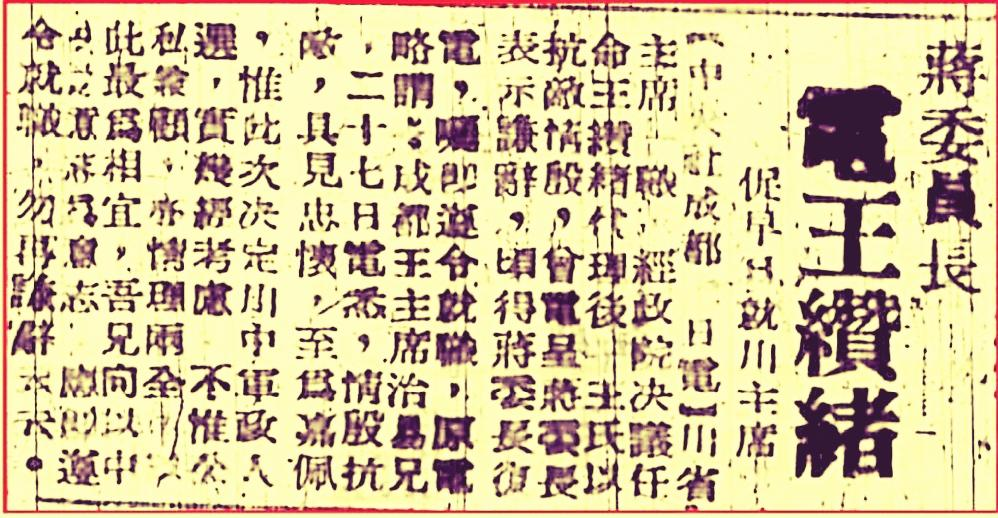 蔣委員長
電王纘緒
促早日就川主席
【中央社成都 日電】川省
主席 職,經政院决議任
命王纘緒代理後 王氏以
抗敵情殷,會電呈蔣委長
表示謙辭,頃得蔣委長復
電,囑卽遵令就職,原電
略謂:成都王主席治易兄
,二十七日電悉,情殷抗
敵,具見忠懷,至爲嘉佩
,惟此次决定川中軍政人
選,實幾經考慮 不惟公
私兼顧,亦情理兩全
此最爲相宜,吾兄向以中
意志爲意志 應卽遵
令就職,勿再謙辭 云云。